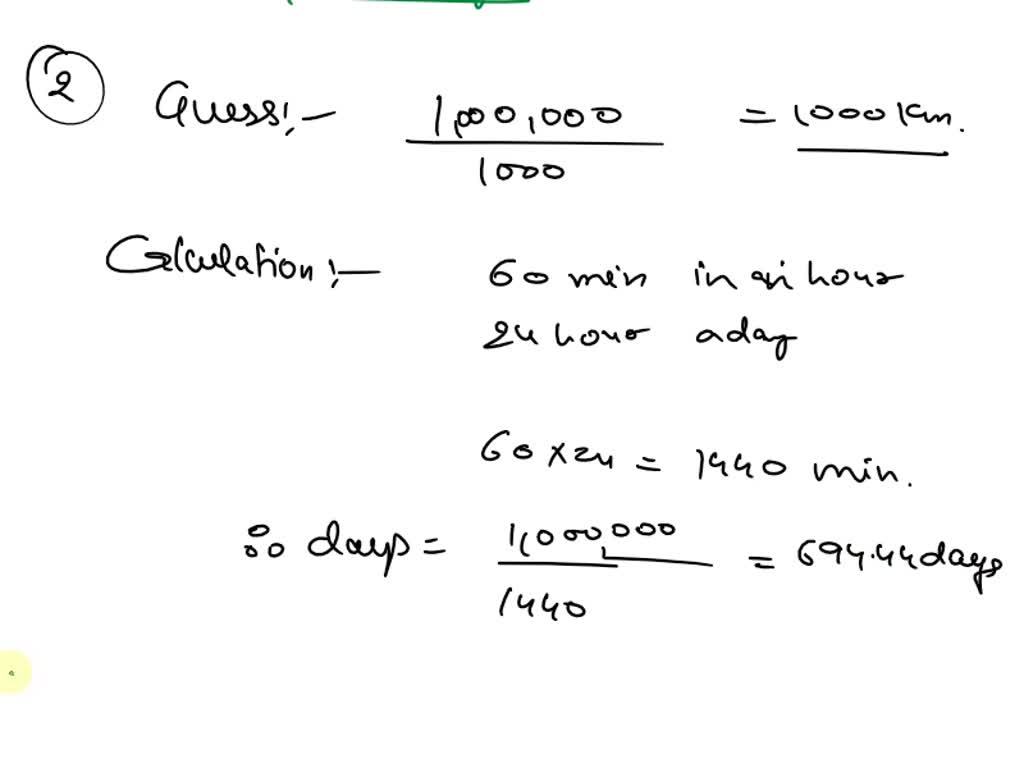 2 Guess:- 1,000,000 / 1000 = 1000 km.
Calculation:- 60 min in an hour
24 hour a day
60 x 24 = 1440 min.
∴ days = 1,000,000 / 1440 = 694.44 days